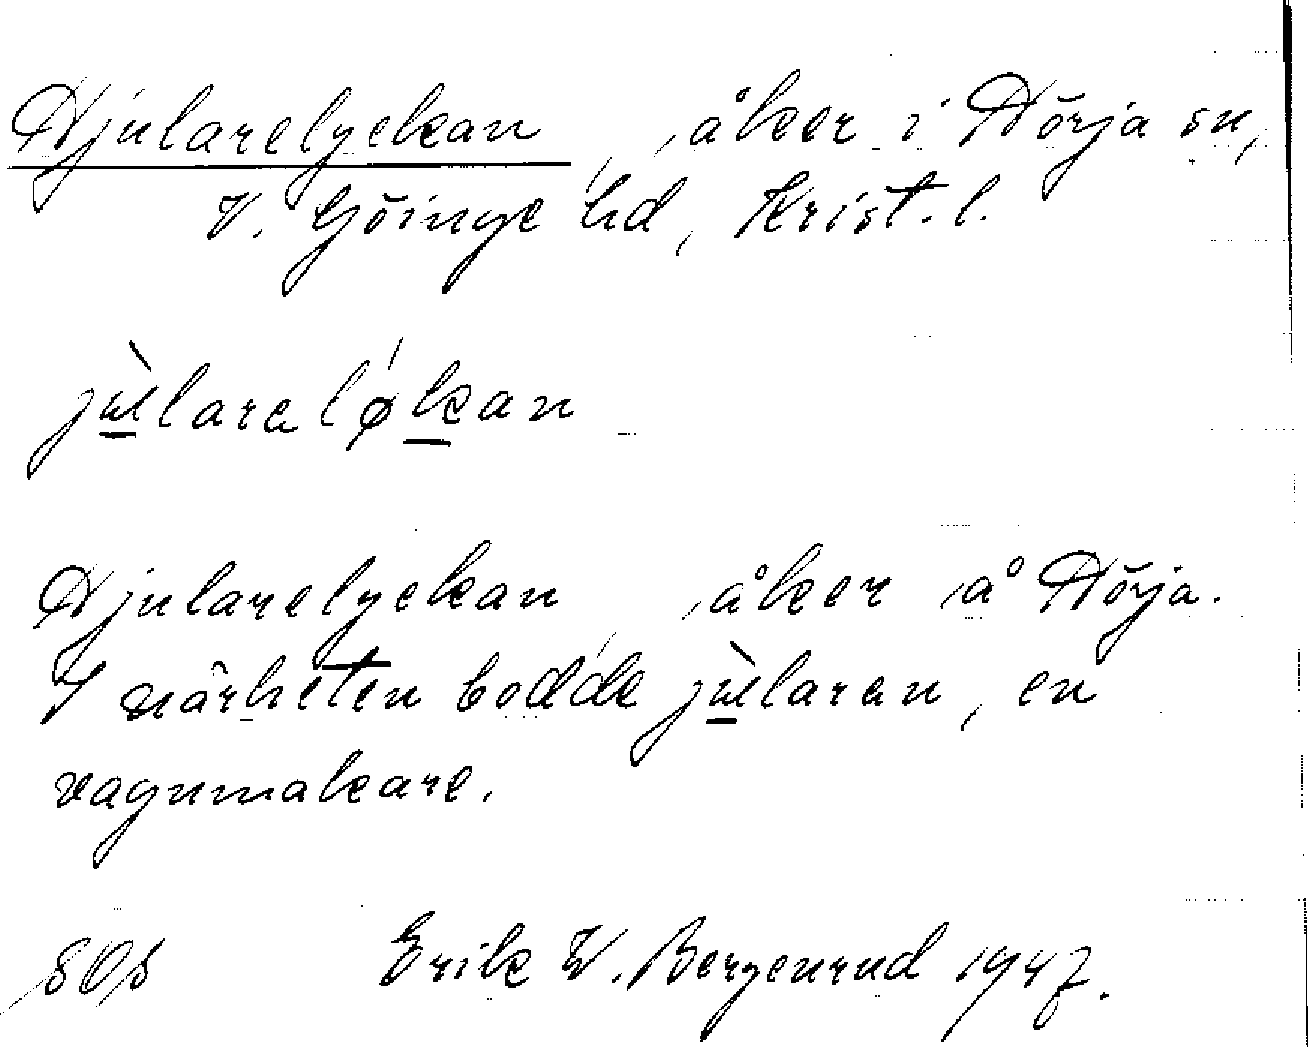 Hjularelyckan, åker i Hörja sn,
V. Göinge hd, Krist. l.
jùlareløkan
Hjularelyckan, åker å Hörja.
I närheten bodde jùlaren, en
vagnmakare.
Erik W. Bergenrud 1947.